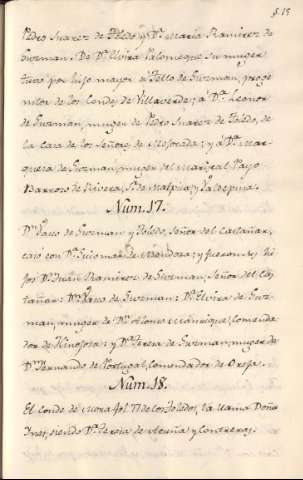 f. 15
Pedro Suarez de Toledo, y Dª. Maria Ramirez de
Guzman. De Dª. Elvira Palomeque su muger
tuvo por hijo mayor a Tello de Guzman, proge-
nitor de los Condes de Villaverde; á Dª. Leonor
de Guzman, muger de Pedro Suarez de Toledo, de
la Casa de los Señores de Mejorada: y á Dª. Mar-
quesa de Guzman, muger del Mariscal Payo
Barroso de Rivera, Sr. de Malpica y Valdepusa.
Num. 17.
Dn. Vasco de Guzman y Toledo, Señor del Castañar,
casó con Dª. Guiomar de Mendoza: y fueron sus hi-
jos Dn. Juan Ramirez de Guzman, Señor del Cas-
tañar: Dn. Vasco de Guzman: Dª. Elvira de Guz-
man, muger de Dn. Alonso Manrique, Comenda-
dor de Hinojosa: y Dª. Teresa de Guzman, muger de
Dn. Fernando de Portugal, Comendador de Oreja.
Num. 18.
El Conde de Mora fol. 77 de los Toledos, la llama Doña
Ines, siendo Dª. Teresa de Acuña y Contreras.